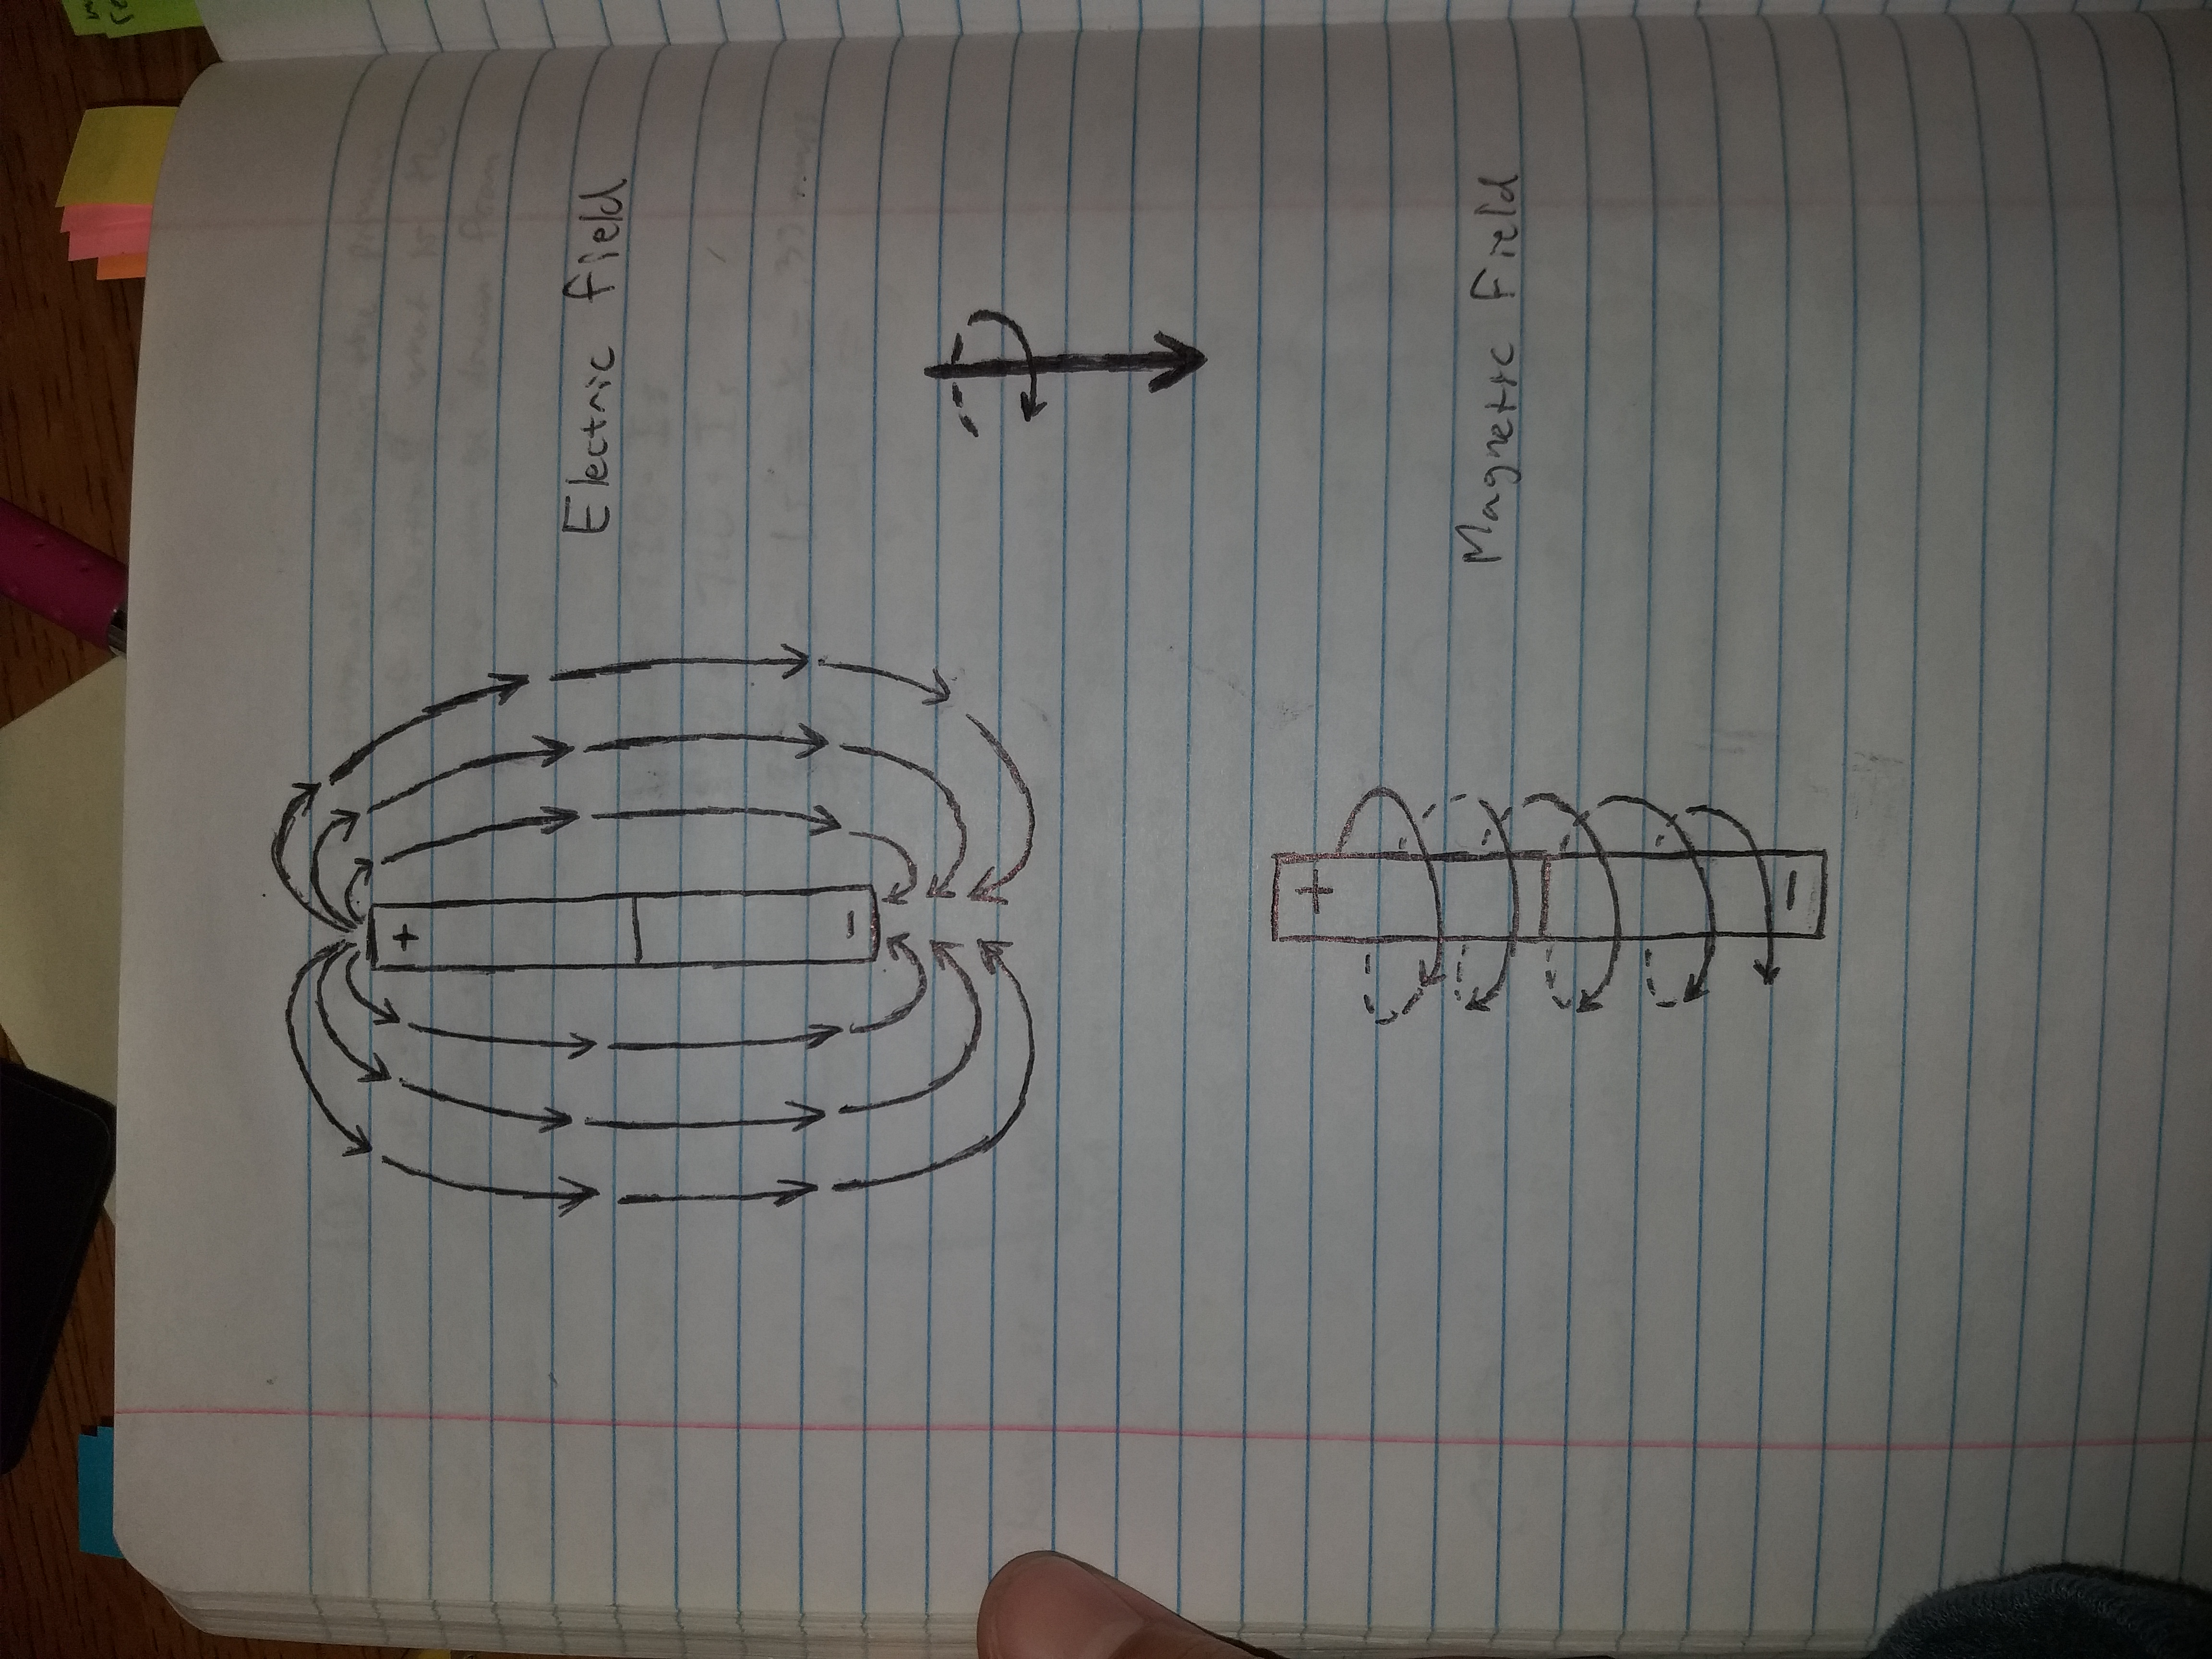 +
-
Electric Field
+
Magnetic Field
-